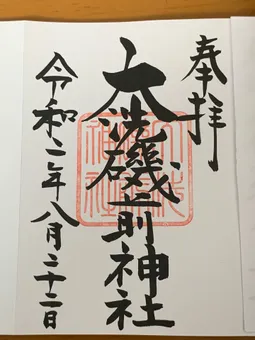 奉拝
大洗磯前神社
令和二年八月二十二日